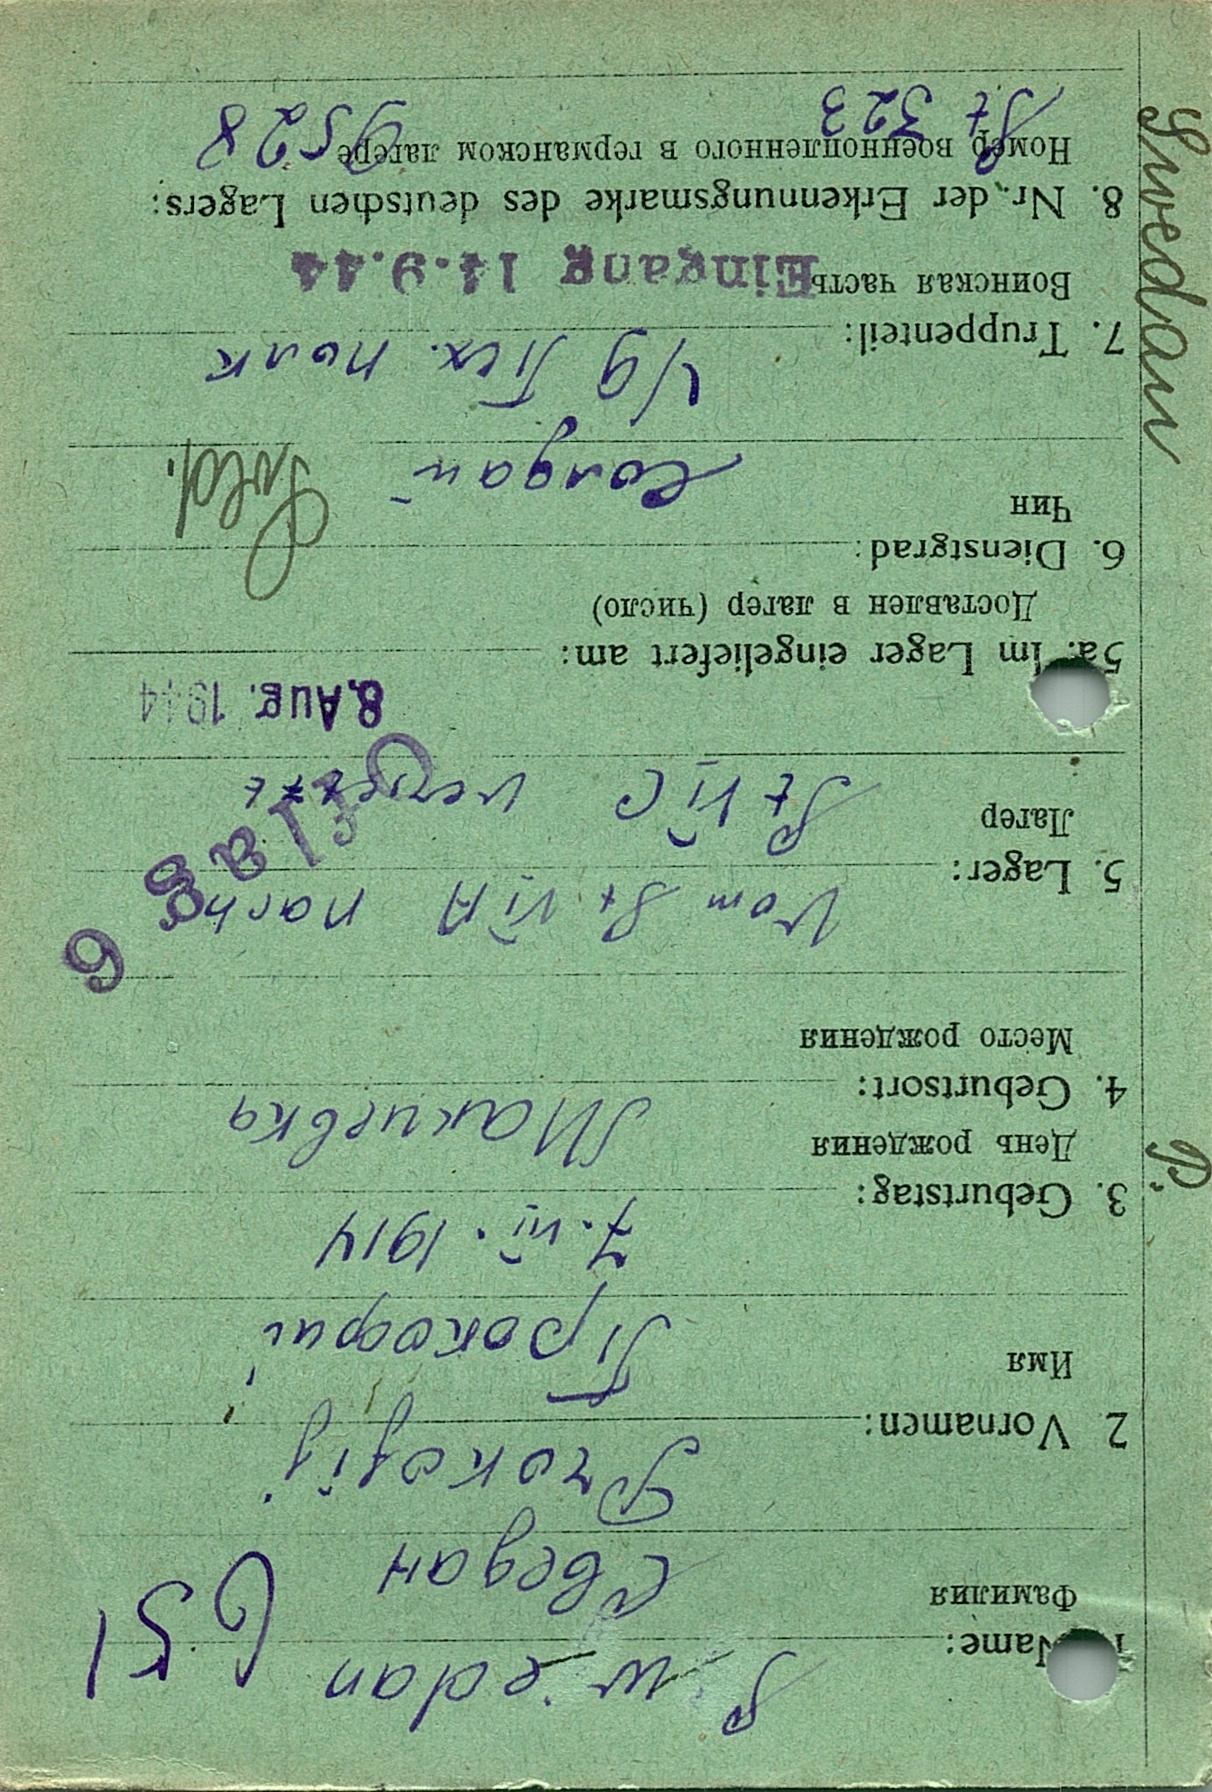 Swedan
P.
1. Name:
Swedan
651
Фамилия
Сведан
2 Vornamen:
Prokofij
Имя
Прокофи
3. Geburtstag:
7. VII. 1914
День рождения
4. Geburtsort:
Макиевка
Место рождения
5. Lager:
Vom St VI A nach
Лагер
St VI C versetzt
Oflag 6
8. Aug. 1944
5a. Im Lager eingeliefert am:
Доставлен в лагер (число)
6. Dienstgrad:
Чин
Солдаи
Sold.
7. Truppenteil:
49 Пех. полк
Воинская часть
Eingang 14.9.44
8. Nr. der Erkennungsmarke des deutschen Lagers:
Номер военнопленного в германском лагере
St 323 9528